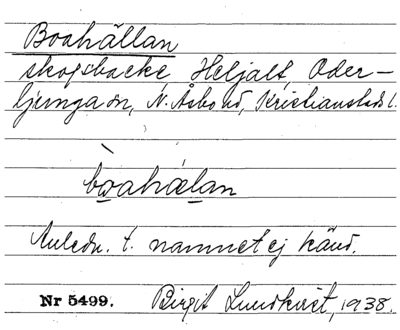 Boahällan
skogsbacke Heljalt, Oder-
ljunga sn, N. Åsbo hd, Kristianstads l.
boahælan
Anledn. t. namnet ej känd.
Nr 5499. Birgit Lundkvist, 1938.